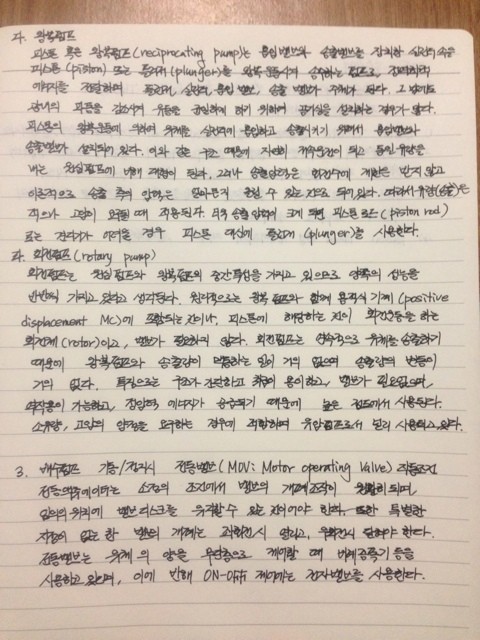 다. 왕복펌프
피스톤 혹은 왕복펌프(reciprocating pump)는 흡입밸브와 송출밸브를 장치한 실린더속을
피스톤(piston) 또는 플런저(plunger)를 왕복운동시켜 송출하는 펌프로, 정적
에너지를 전달하며 플런저, 실린더, 흡입 밸브, 송출 밸브가 주체가 된다. 그 밖에도
관내의 파동을 감소시켜 유동을 균일하게 하기 위하여 공기실을 설치하는 경우가 많다.
피스톤의 왕복운동에 의하여 유체를 실린더에 흡입하고 송출시키기 위해서 흡입밸브와
송출밸브가 설치되어 있다. 이와 같은 구조 때문에 자연히 저속운전이 되고 동일유량을
내는 원심펌프에 비해 대형이 된다. 그러나 송출압력은 회전수에 제한은 받지 않고
이론적으로 송출 측의 압력은 얼마든지 올릴 수 있는 것으로 되어있다. 따라서 유량(송출)은
적으나 고압이 요구될 때 적용된다. 특히 송출압력이 크게 되면 피스톤 로드(piston rod)
로는 견디기가 어려울 경우 피스톤 대신에 플런저(plunger)를 사용한다.
라. 회전펌프(rotary pump)
회전펌프는 원심펌프와 왕복펌프의 중간특성을 가지고 있으므로 양쪽의 성능을
반반씩 가지고 있다고 생각된다. 원리적으로는 왕복 펌프와 함께 용적식 기계(positive
displacement Mc)에 포함되는 것이나, 피스톤에 해당하는 것이 회전운동을 하는
회전체(rotor)이고, 밸브가 필요하지 않다. 회전펌프는 연속적으로 유체를 송출하기
때문에 왕복펌프와 송출량이 맥동하는 일이 거의 없으며 송출량의 변동이
거의 없다. 특징으로는 구조가 간단하고 취급이 용이하고, 밸브가 필요없으며,
역작용이 가능하고, 정압력 에너지가 공급되기 때문에 높은 점도에서 사용된다.
소유량, 고압의 양정을 요구하는 경우에 적합하며 유압펌프로서 널리 사용되고 있다.
3. 배수펌프 기동/정지시 전동밸브(MOV: Motor operating Valve) 작동조건
전동 소정의 조건에서 밸브의 개폐조작이 원활히 되며,
임의의 위치에 밸브 디스크를 유지할 수 있는 것이어야 한다. 또한 특별한
지정이 없는 한 밸브의 개폐는 좌회전시 열리고, 우회전시 닫혀야 한다.
전동밸브는 유체의 양을 무단층으로 제어할 때 비례증폭기 등을
사용하고 있으며, 이에 반해 ON-OFF 제어에는 전자밸브를 사용한다.